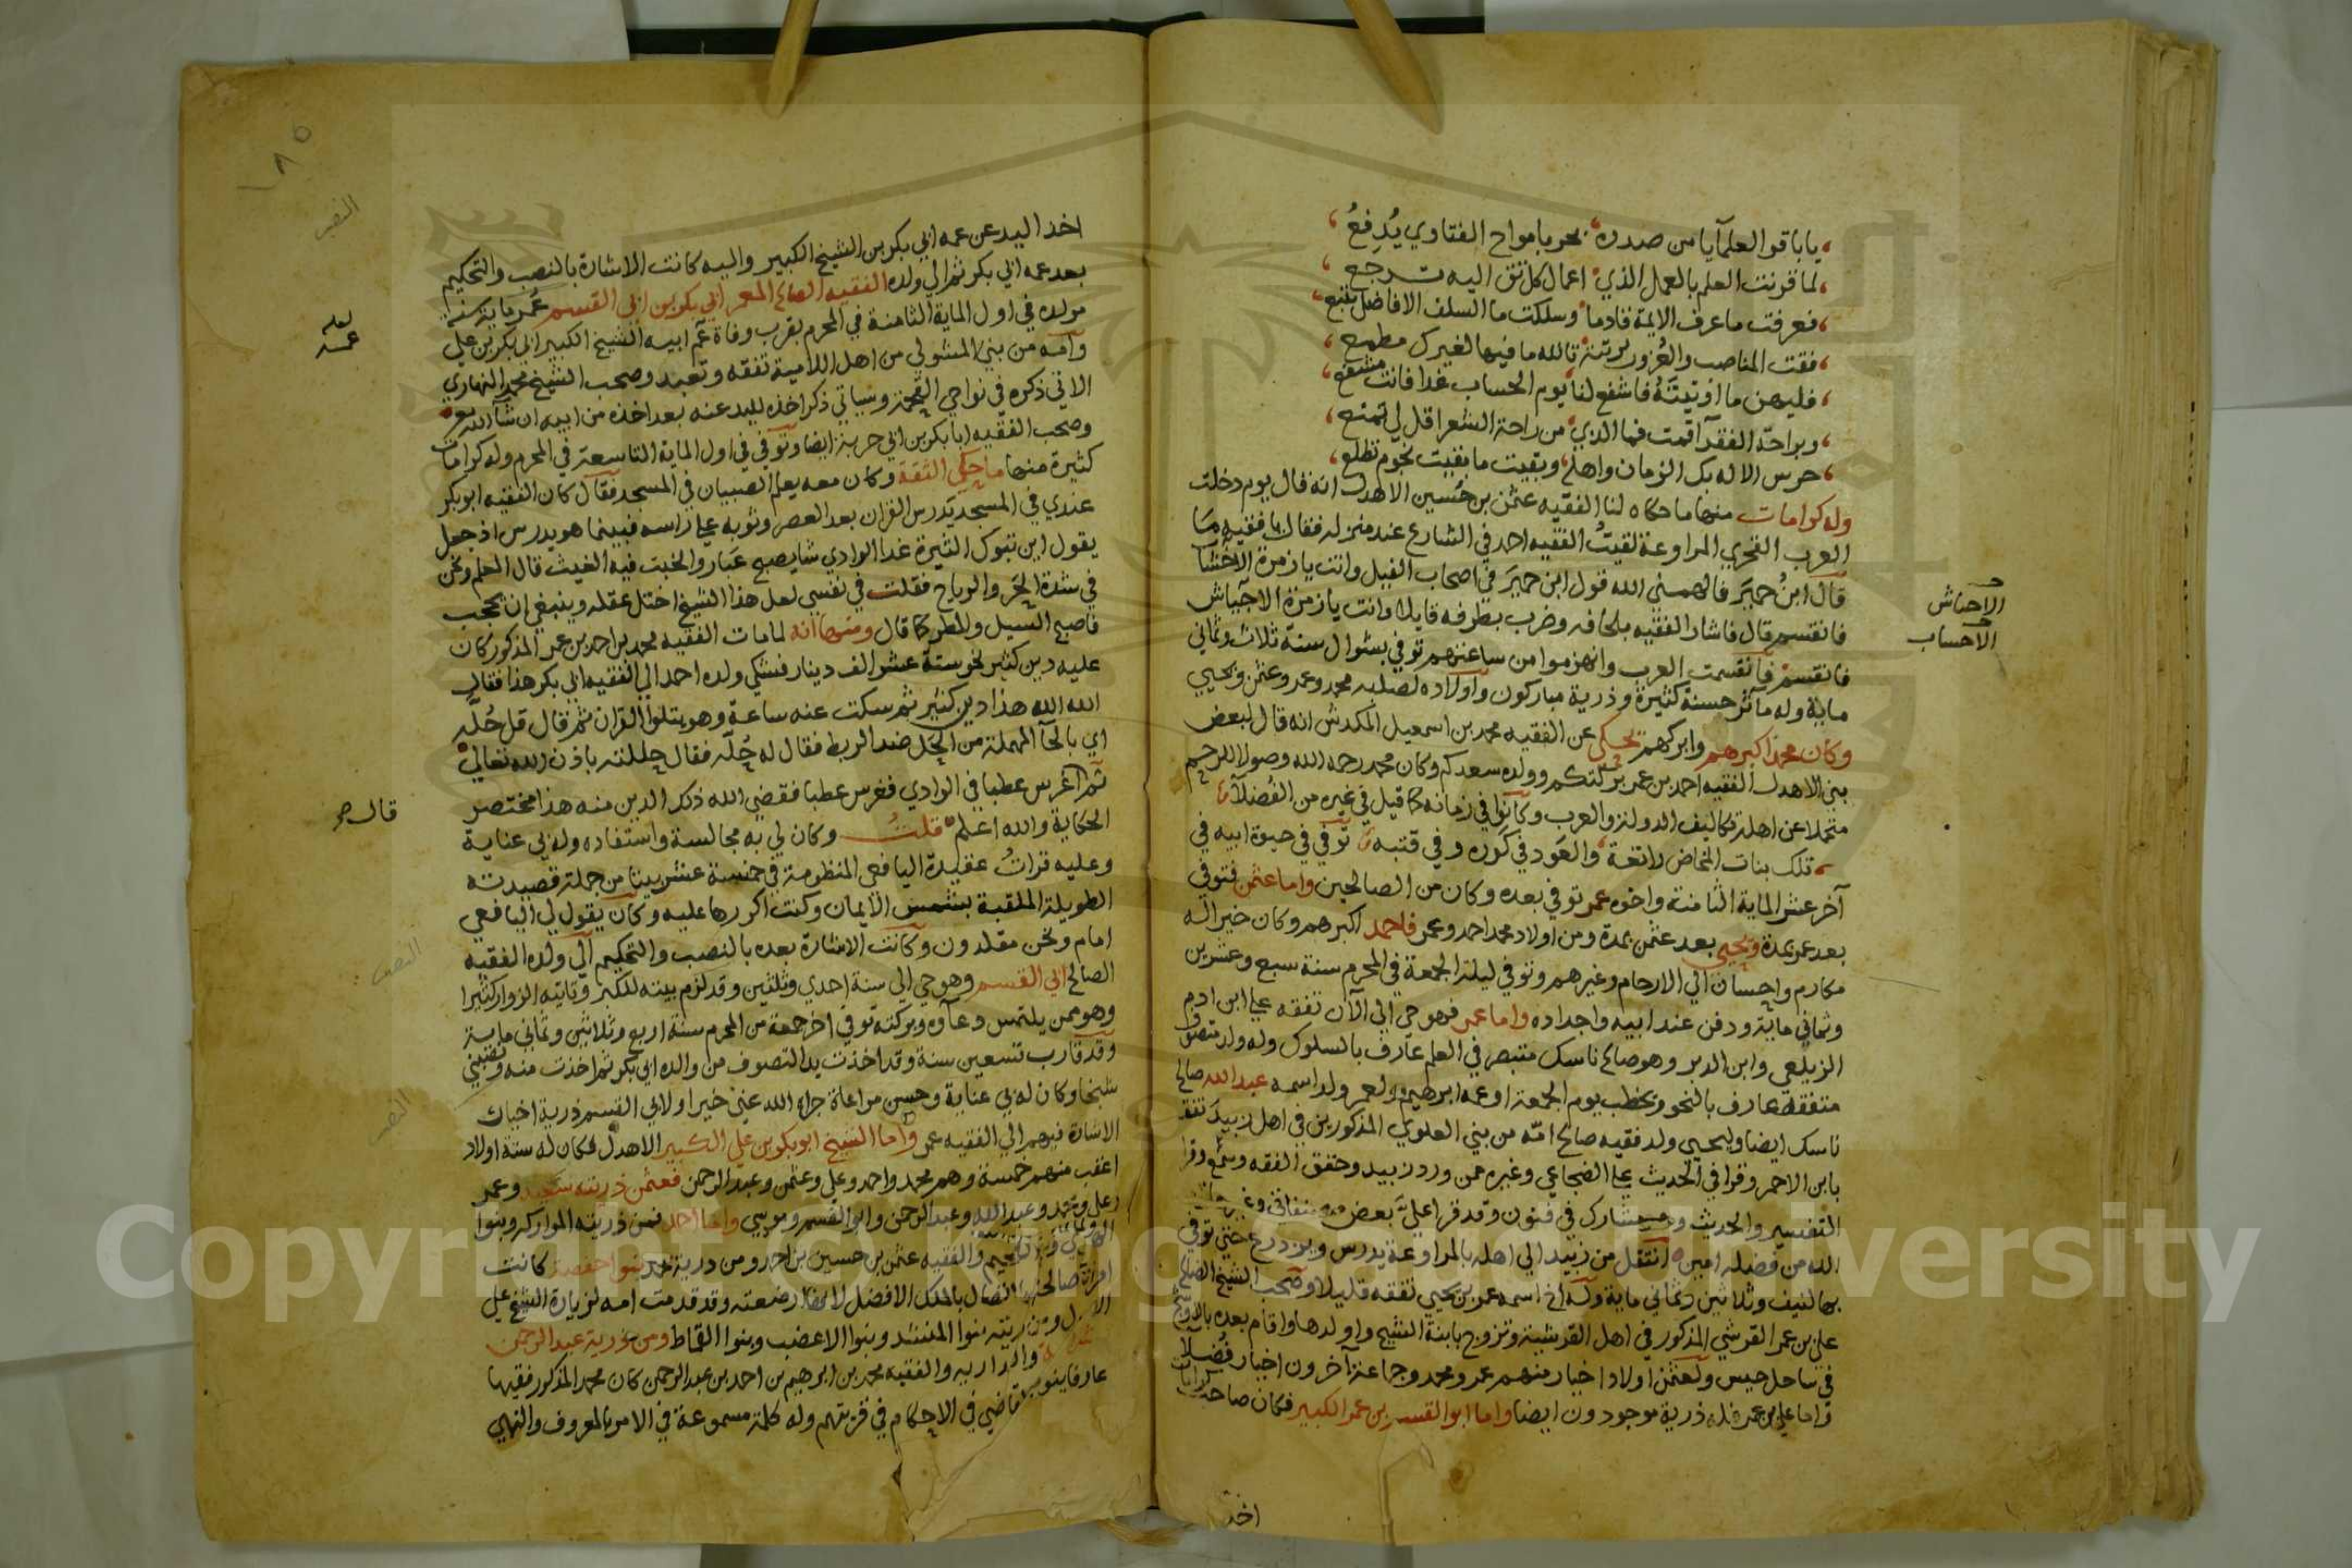 يا باقر العلمآ يا من صدره بحر بامواج الفتاوي يُدفعُ
لما قرنت العلم بالعمل الذي اعمال كل تقى اليه ترجع
فعرفت ما عرف الايمة قادما وسلكت ما السلف الافاضل تتبع
فقت المناصب والغرور برتبة تالله ما فيها لغيرك مطمع
فليهن ما اوتيتَهُ فاشفع لنا يوم الحساب غدا فانت مشفع
وبراحة الفقرآ اقمت فما الذي من راحة الشعرا قل لي تمنع
حرس الاله بك الزمان واهله وبقيت ما بقيت نجوم تطلع
وله كرامات منها ما حكاه لنا الفقيه عثمن بن حُسين الاهدل انه قال يوم دخلت
العرب الفخري المراوعة لقيتُ الفقيه احمد في الشارع عند منزله فقال يا فقيه مَا
قال ابنُ حميَر فالهمني الله قول ابن حميَر في اصحاب الفيل وانت يا زمرة الاخشا
فانقسم قال فاشار الفقيه بلحافه وضرب بطرفه قايلا وانت يا زمرة الاحباش
فانقسم فانقسمت العرب وانهزموا من ساعتهم توفي بشوال سنة ثلاث وثماني
ماية وله مآثر حسنة كثيرة وذرية مباركون واولاده لصلبه محمد وعمر وعثمن ويحيي
وكان محمد اكبرهم وابركهم يحكى عن الفقيه محمد بن اسمعيل المكدش انه قال لبعض
بني الاهدل الفقيه احمد بن عمر بركتكم وولده سعدكم وكان محمد رحمه الله وصولا للرحم
متحملا عن اهله تكاليف الدولة والعرب وكانوا في زمانه كما قيل في غيره من الفُضلآ
تلك بنات المخاض راتعة والعَود في كوره وفي قتبه توفي في حيوة ابيه في
آخر عشر الماية الثامنة واخوه عمر توفي بعده وكان من الصالحين واما عثمن فتوفي
بعد عمر بمدة ويحيى بعد عثمن بمدة ومن اولاد محمد احمد وعمر فاحمد اكبرهم وكان خيرا له
مكارم واحسان الي الارحام وغيرهم وتوفي ليلة الجمعة في المحرم سنة سبع وعشرين
وثماني ماية ودفن عند ابيه واجداده واما عمر فهو حي الي الآن تفقه علي ابن ادم
الزيلعي وابن الدبر وهو صالح ناسك متبصر في العلم عارف بالسلوك وله ولد متصوف
متفقه عارف بالنحو ويخطب يوم الجمعة او عمه ابرهيم ولعمر ولد اسمه عبد الله صالح
ناسك ايضا وليحيي ولد فقيه صالح امّه من بني العلوي المذكورين في اهل زبيد تفقه
بابن الاحمر وقرا في الحديث علي الضجاعي وغيره ممن ورد زبيد وحقق الفقه وسمع وقرا
التفسير والحديث مشارك في فنون وقد قرا عليَّ بعض
الله من فضله امين انتقل من زبيد الي اهله بالمراوعة يدرس ويزدرع حتي توفي
بها لنيف وثلاثين وثماني ماية وله اخ اسمه عمر بن يحيي تفقه قليلا وصحب الشيخ الصالح
علي بن عمر القرشي المذكور في اهل القرشية وتزوج بابنة الشيخ واولدها واقام بعده
في ساحل حيس ولعثمن اولاد اخيار منهم عمر ومحمد وجماعة آخرون اخيار فُضلا
واما علي بن عمر فله ذرية موجودون ايضا واما ابو القسم بن عمر الكبير فكان صاحب كرامات
اخذ
الاحباش
الاحساب
١٨٥
اخذ اليد عن عمه ابي بكر بن الشيخ الكبير واليه كانت الاشارة بالنصب والتحكيم
بعد عمه ابي بكر ثم الي ولده الفقيه الصالح المعمر ابي بكر بن ابي القسم عُمر ماية سنة
مولده في اول الماية الثامنة في المحرم بقرب وفاة عم ابيه الشيخ الكبير ابي بكر بن علي
وامه من بني المشولي من اهل اللامية تفقه وتعبد وصحب الشيخ محمد النهاري
الاتي ذكره في نواحي القحمة وسياتي ذكر اخذه لليد عنه بعد اخذه من ابيه ان شآ الله تع
وصحب الفقيه ابا بكر بن ابي حربة ايضا وتوفي في اول الماية التاسعة في المحرم وله كرامات
كثيرة منها ما حكي الثقة وكان معه يعلم الصبيان في المسجد فقال كان الفقيه ابو بكر
عندي في المسجد يدرس القران بعد العصر وثوبه علي راسه فبينما هو يدرس اذ جعل
يقول اين تبرك الثيرة غدا الوادي شا يصبح عبار والخبت فيه الغيث قال المعلم ونحن
في شدة الحَر والرياح فقلت في نفسي لعل هذا الشيخ اختل عقله وينبغي ان يحجب
فاصبح السيل والمطر كما قال ومنها انه لما مات الفقيه محمد بن احمد بن عمر المذكور كان
عليه دين كثير نحو ستة عشر الف دينار فشكي ولده احمد الي الفقيه ابي بكر هذا فقال
الله الله هذا دين كثير ثم سكت عنه ساعة وهو يتلوا القران ثم قال قل حُلّه
اي بالحآ المهملة من الحَل ضد الربط فقال له حُلّه فقال حللته باذن الله تعالي
ثم اغرس عطبا في الوادي فغرس عطبا فقضي الله ذلك الدين منه هذا مختصر
الحكاية والله اعلم قلتُ وكان لي به مجالسة واستفاده وله بي عناية
وعليه قراتُ عقيدة اليافعي المنظومة في خمسة عشر بيتا من جملة قصيدته
الطويلة الملقبة بشمس الايمان وكنت اكررها عليه وكان يقول لي اليافعي
امام ونحن مقلدون وكانت الاشارة بعده بالنصب والتحكيم الي ولده الفقيه
الصالح ابي القسم وهو حي الي سنة احدي وثلثين وقد لزم بيته للكبر وتاتيه الزوار كثيرا
وهو ممن يلتمس دعاوه وبركته توفي اخر جمعة من المحرم سنة اربع وثلاثين وثماني ماية
وقد قارب تسعين سنة وقد اخذت يد التصوف من والده ابي بكر ثم اخذت منه ونصبني
شيخا وكان له بي عناية وحسن مراعاة جزاه الله عني خيرا ولابي القسم ذرية اخيار
الاشارة فيهم الي الفقيه عمر واما الشيخ ابو بكر بن علي الكبير الاهدل فكان له ستة اولاد
اعقب منهم خمسة وهم محمد واحمد وعلي وعثمن وعبد الرحمن فعثمن ذريته سعيد وعمر
وعلي ومحمد وعبد الله وعبد الرحمن وابو القسم وموسي واما احمد فمن ذريته المراركه وبنوا
والفقيه عثمن بن حسين بن احمد ومن ذرية كانت
امراة صالحة اتصال بالملك الافضل لانها ارضعته وقد قدمت امه لزيارة الشيخ علي
ذريته بنوا المنشد وبنوا الاعضب وبنوا القماط ومن ذرية عبد الرحمن
والفقيه محمد بن ابرهيم بن احمد بن عبد الرحمن كان محمد المذكور فقيها
عارفا ينوب القاضي في الاحكام في قريتهم وله كلمة مسموعة في الامر بالمعروف والنهي
النصب
قال
النصب
النصب
Copyright © King Saud University